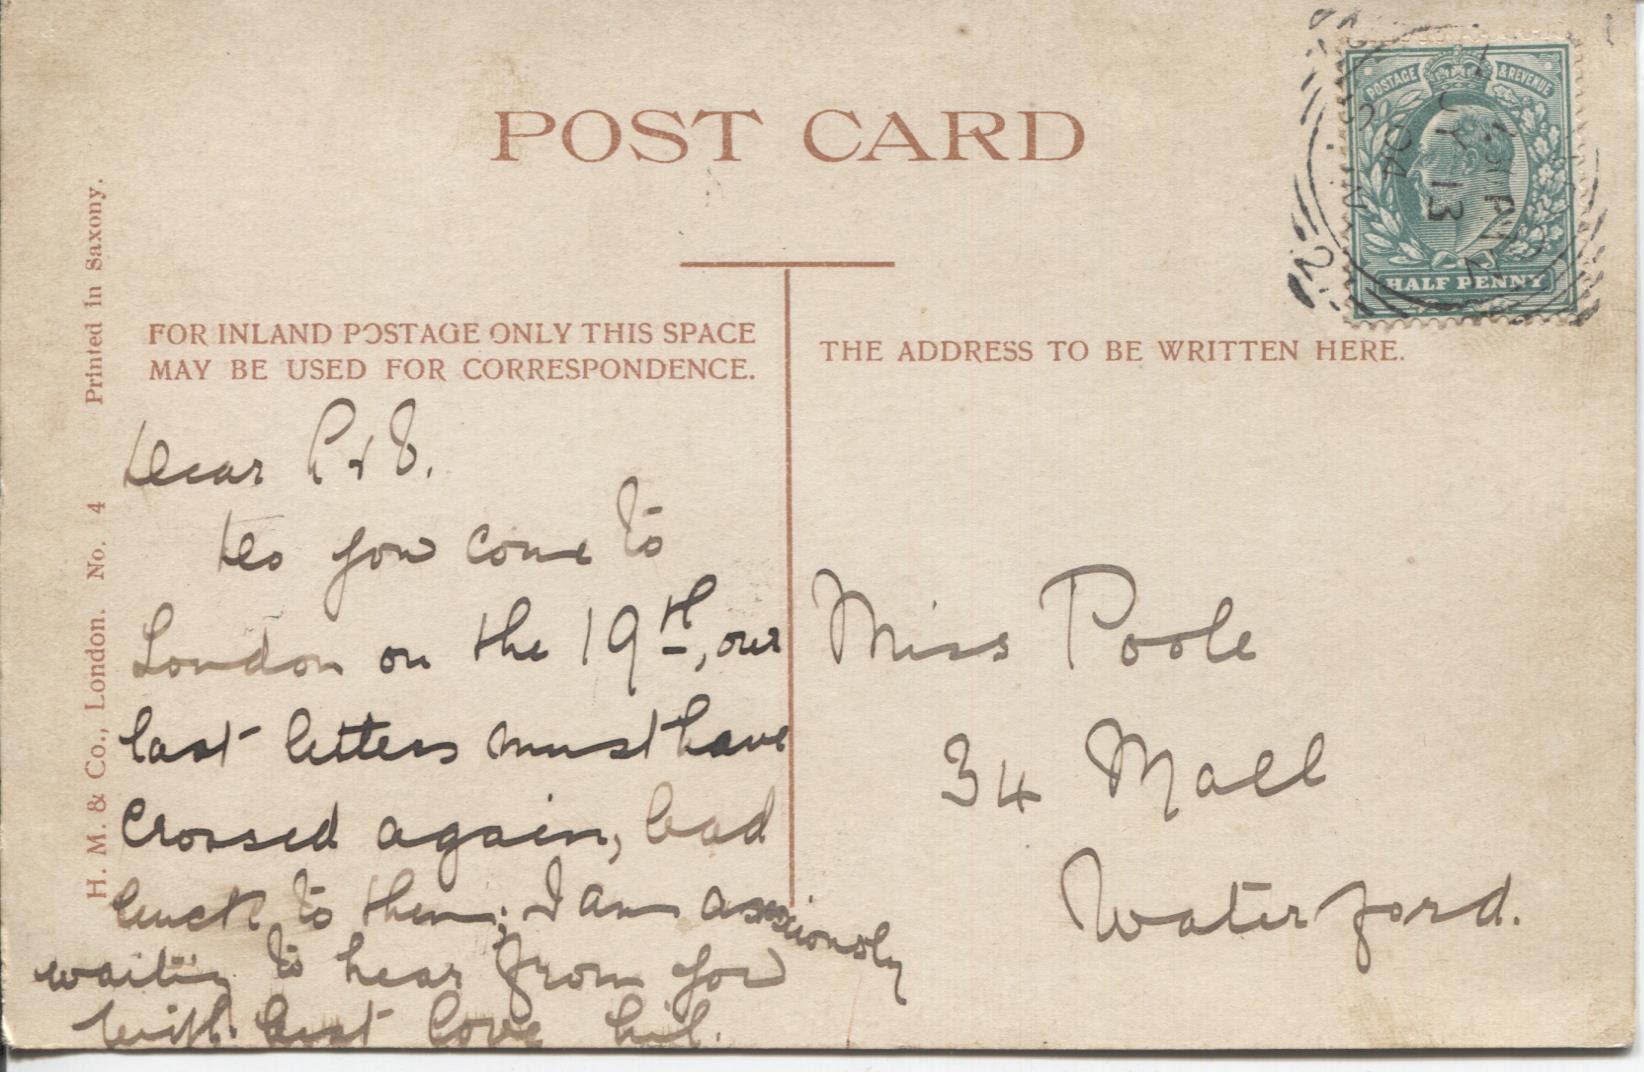 POST CARD
POSTAGE & REVENUE
HALF PENNY
13
04
FOR INLAND POSTAGE ONLY THIS SPACE
MAY BE USED FOR CORRESPONDENCE.
THE ADDRESS TO BE WRITTEN HERE.
H. M. & Co., London. No. 4 Printed in Saxony.
Dear P & E.
Do you come to
London on the 19th, our
last letters must have
crossed again, bad
luck to them; I am anxiously
waiting to hear from you
with best love
Miss Poole
34 Mall
Waterford.